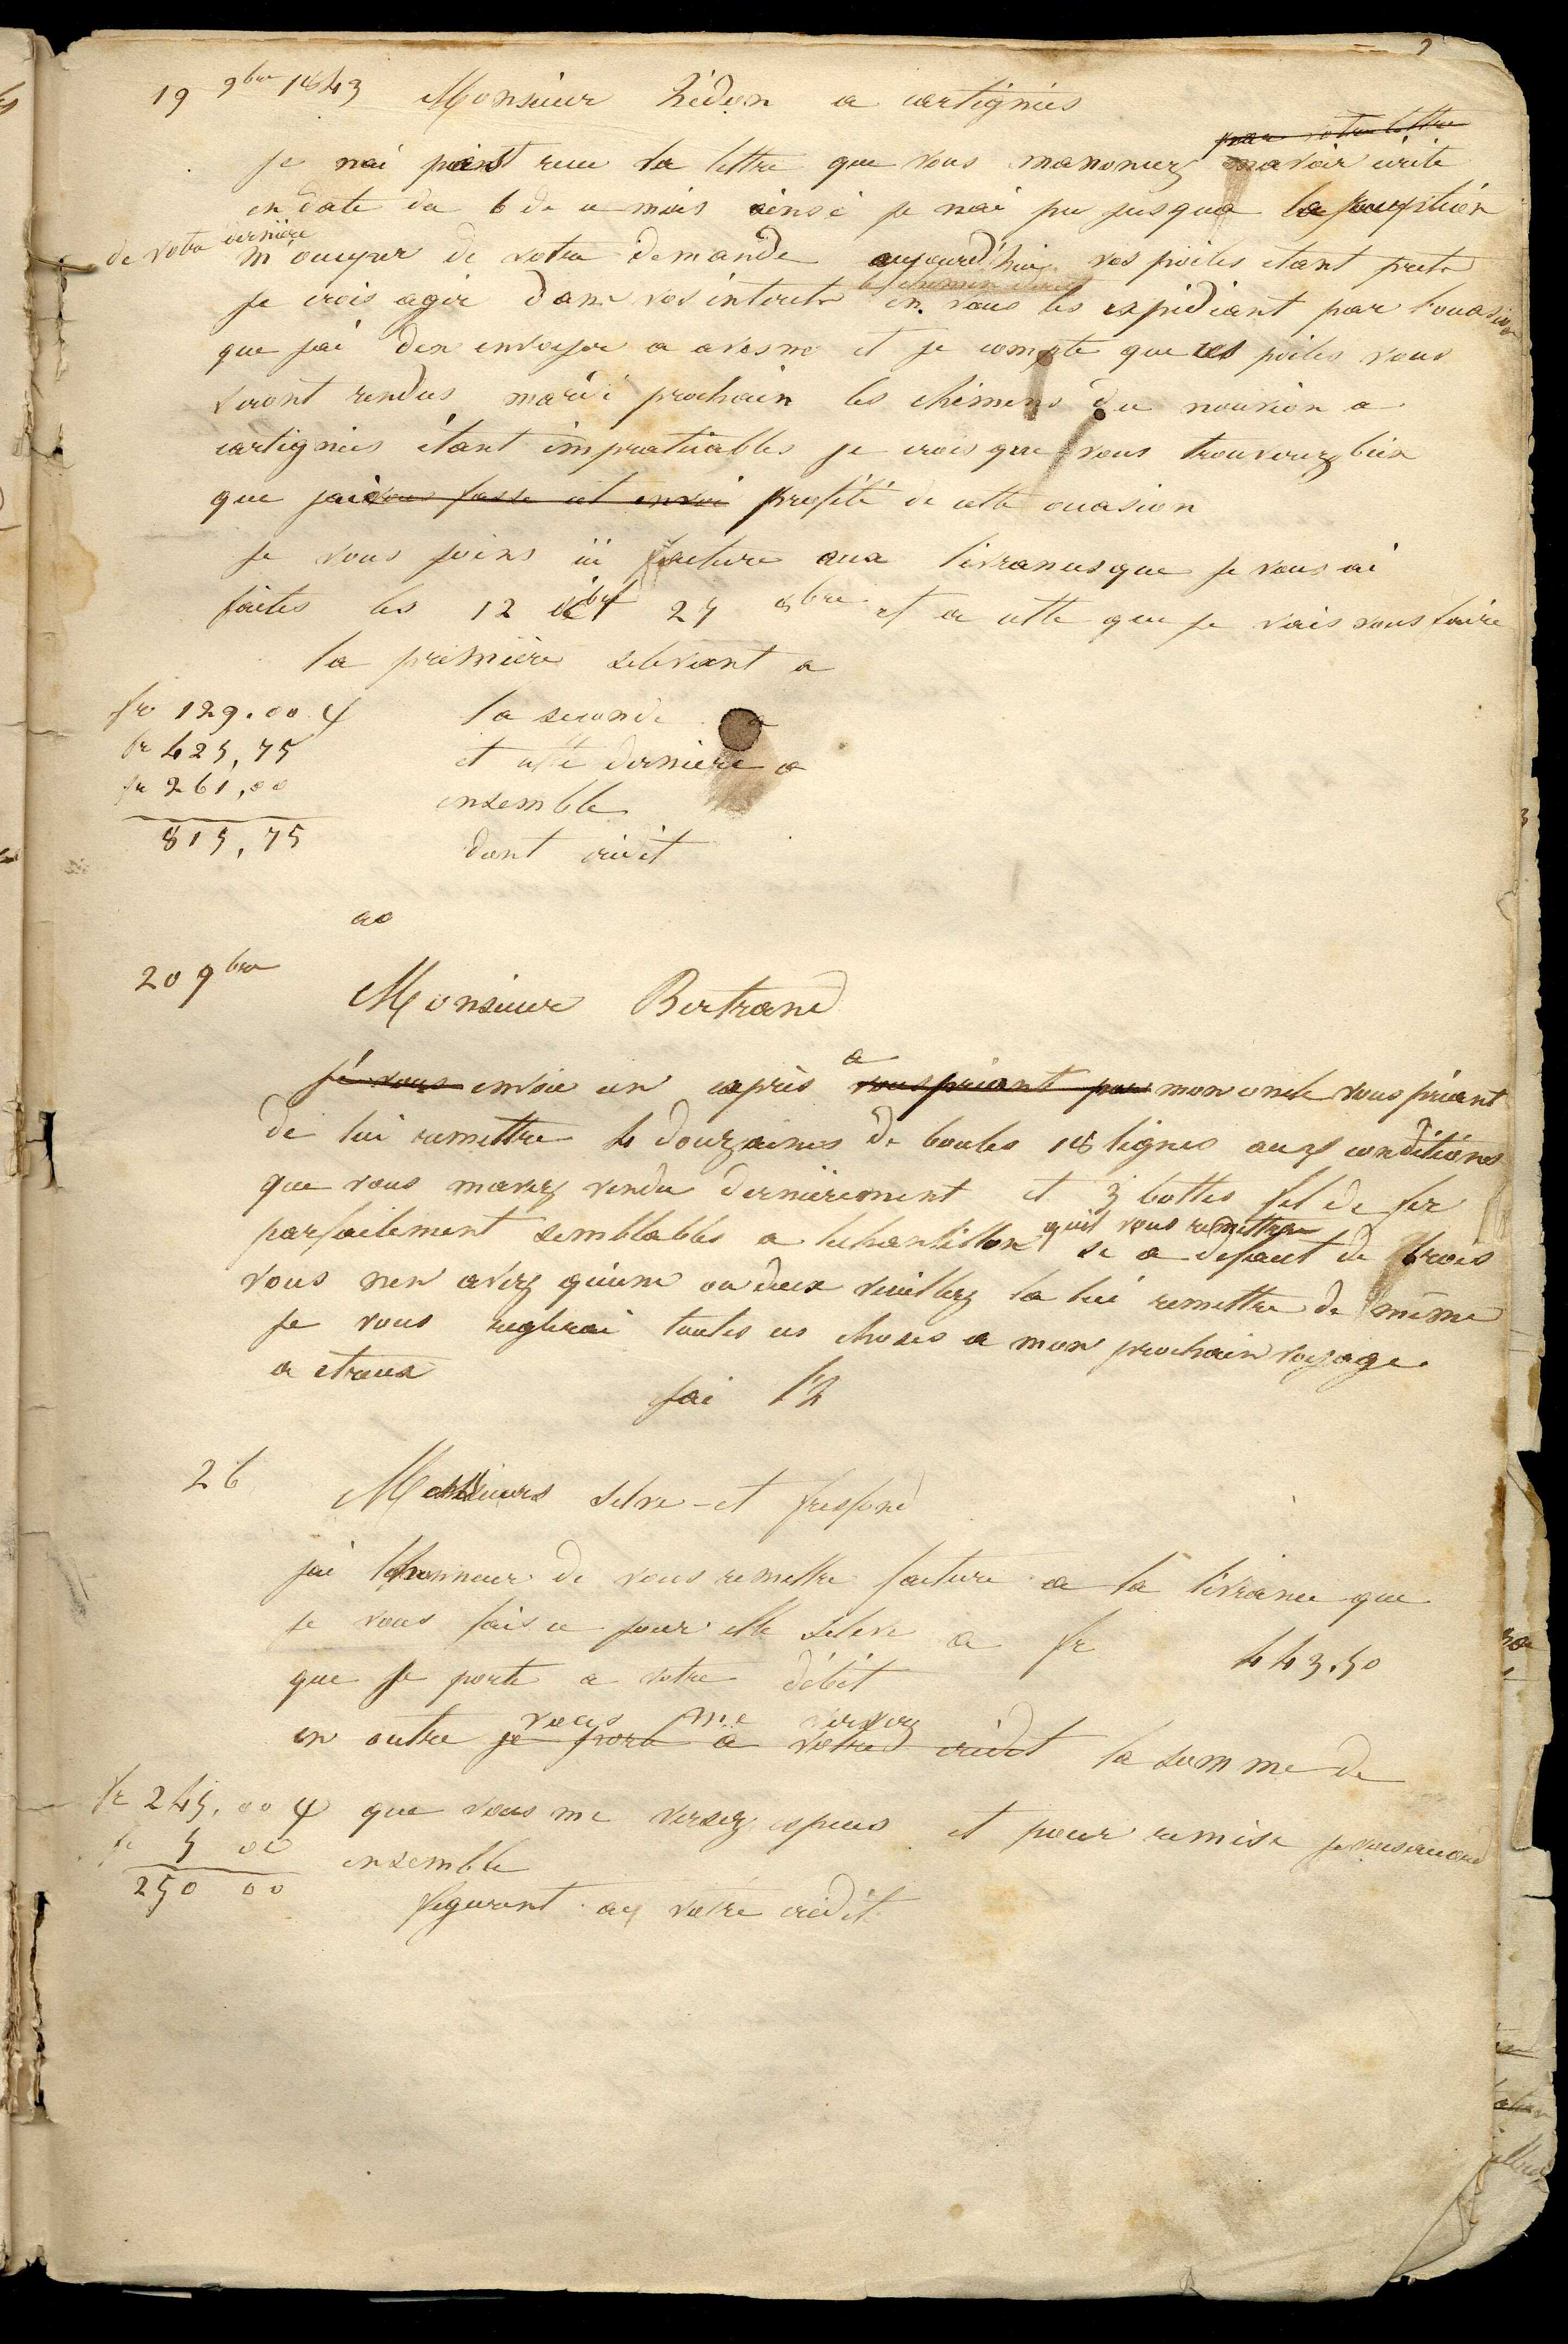 19 9bre 1843 Monsieur hédon a cartignies
par votre lettre
je nai point recu la lettre que vous manoncez mavoir ecrite
en date du 6 de ce mois ainsi je nai pu jusqua la reception
de votre derniere
m'occuper de votre demande aujourd'hui vos poiles etant prets
je crois agir dans vos interets en vous les expediant par l'ocasion
que jai den envoyer a avesne et je compte que ces poiles vous
seront rendus mardi prochain les chemins du nouvion a
cartignies étant impraticables je crois que vous trouverez bien
que jai vous fasse cet envoi profité de cette ocasion
je vous joins ici facture aux livrances que je vous ai
faites les 12 et 25 8bre et a cette que je vais vous faire
la première selevant a
fr 129.00 la seconde a
fr 425,75 et cette derniere a
fr 261,00 ensemble
815,75 dont crédit
ao
20 9bre
Monsieur Bertrand
a
je vous envoie un exprès vous priant pour mon oncle vous priant
de lui remettre 4 douzaines de boules 18 lignes aux conditions
que vous mavez vendu dernièrement et 3 bottes fil de fer
parfaitement semblables a lechantillon quil vous remettra si a defaut de trois
vous nen avez quune ou deux veuillez la lui remettre de même
je vous reglerai toutes ces choses a mon prochain voyage
a etreux
jai l'h
26 Messieurs selve et fresfond
jai lhonneur de vous remettre facture a la livrance que
je vous fais ce jour elle seleve a fr 443.50
que je porte a votre débit
vous me versez
en outre je porte a votre crédit la somme de
fr 245.00 que vous me versez especes et pour remise je vous accorde
fr 5 00 ensemble
250 00
figurent au votre crédit